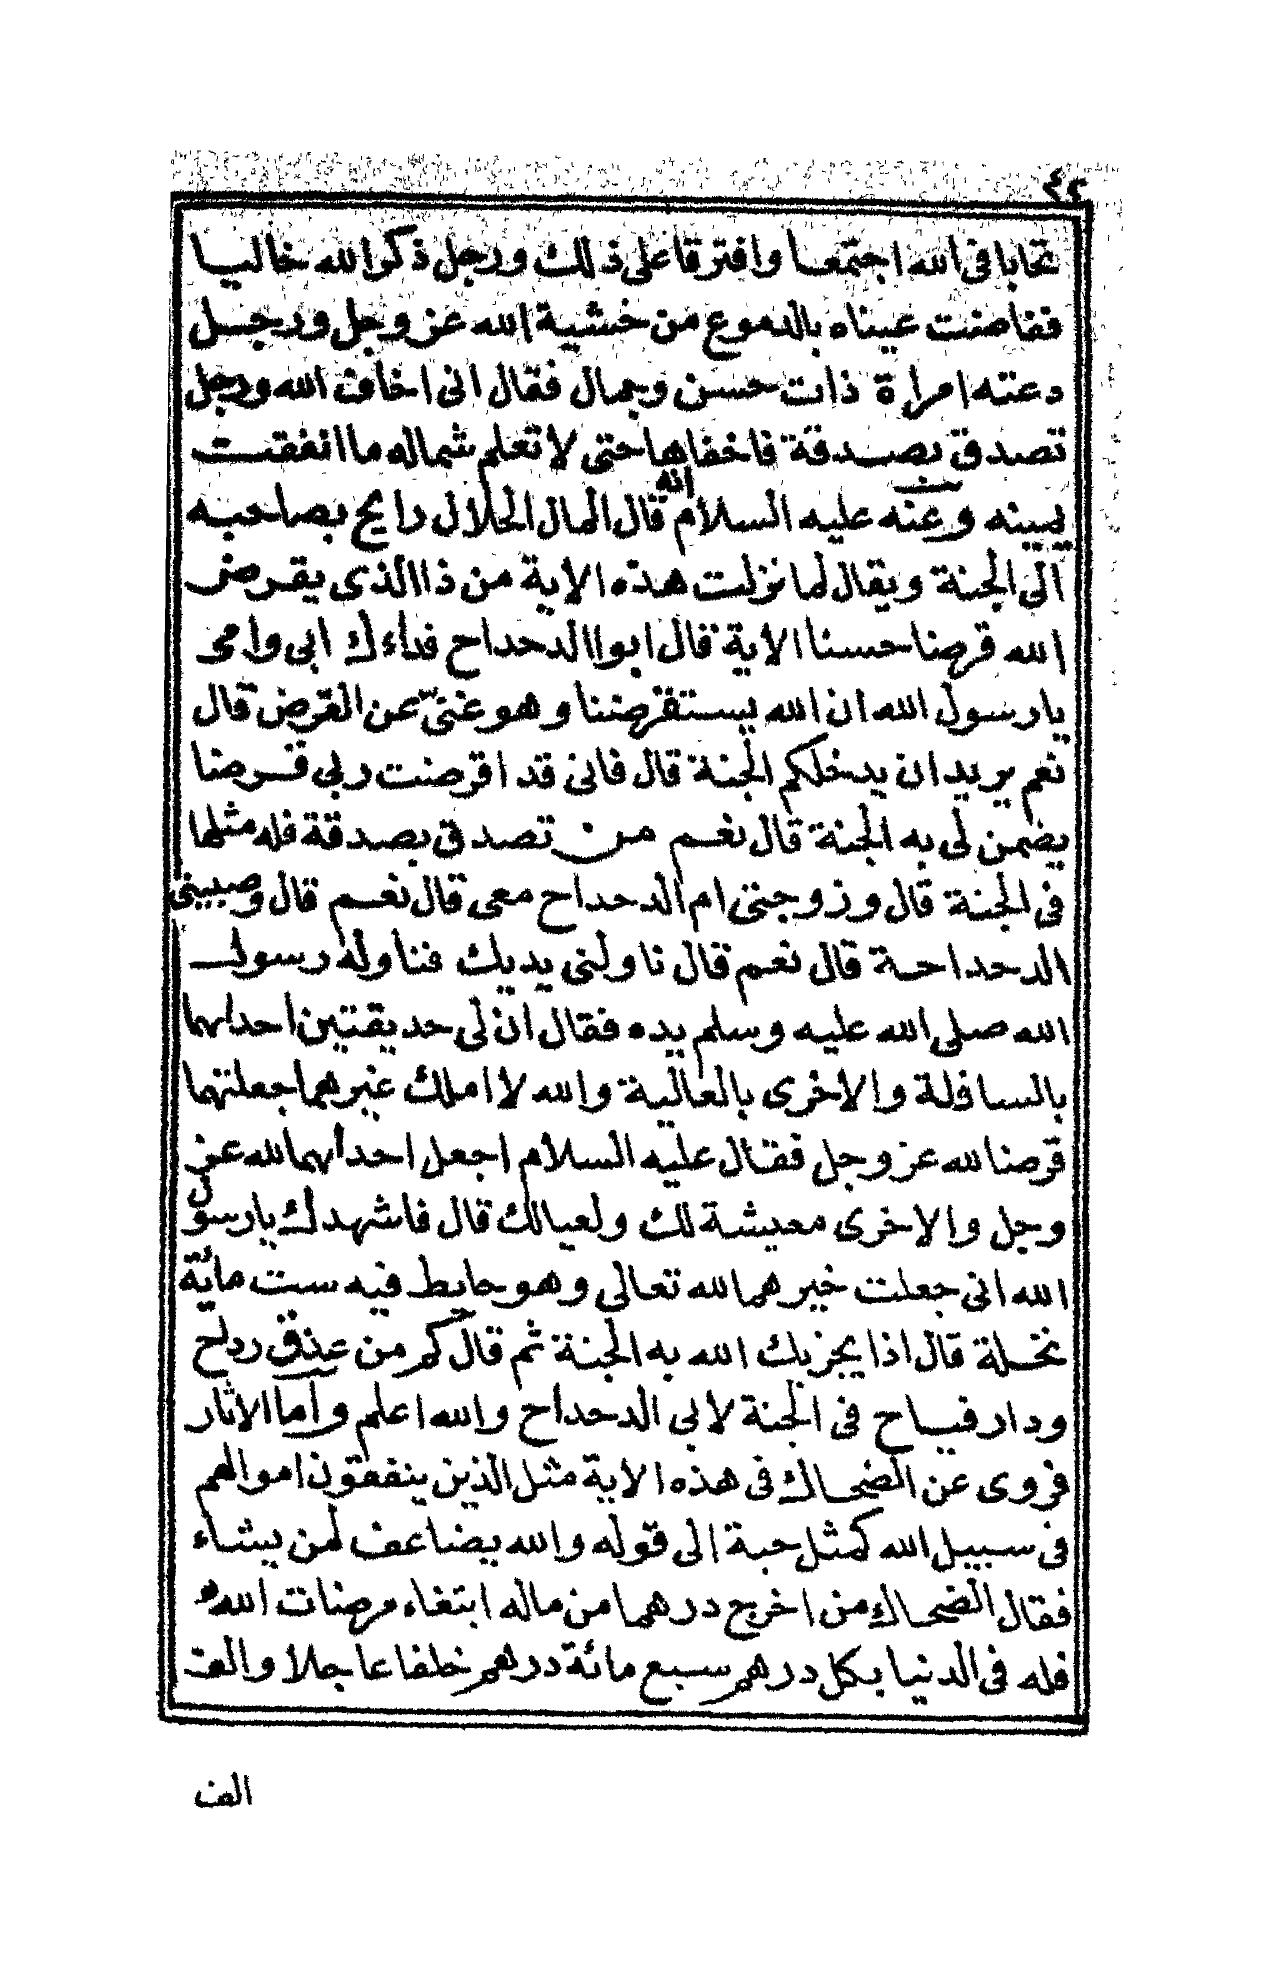 ٤٤
تحابا فى الله اجتمعا وافترقا على ذلك ورجل ذكر الله خاليا
ففاضت عيناه بالدموع من خشية الله عز وجل ورجل
دعته امراة ذات حسن وجمال فقال انى اخاف الله ورجل
تصدق بصدقة فاخفاها حتى لا تعلم شماله ما انفقت
يمينه وعنه عليه السلام انه قال المال الحلال رايح بصاحبه
الى الجنة ويقال لما نزلت هذه الاية من ذا الذى يقرض
الله قرضا حسنا الاية قال ابو الدحداح فداءك ابى وامى
يا رسول الله ان الله يستقرضنا وهو غنىّ عن القرض قال
نعم يريد ان يدخلكم الجنة قال فانى قد اقرضت ربى قرضا
يضمن لى به الجنة قال نعم من تصدق بصدقة فله مثلها
فى الجنة قال وزوجتى ام الدحداح معى قال نعم قال وصبيتى
الدحداحة قال نعم قال ناولنى يديك فناوله رسول
الله صلى الله عليه وسلم يده فقال ان لى حديقتين احداهما
بالسافلة والاخرى بالعالية والله لا املك غيرهما جعلتهما
قرضا لله عز وجل فقال عليه السلام اجعل احداهما لله عز
وجل والاخرى معيشة لك ولعيالك قال فاشهدك يا رسول
الله انى جعلت خيرهما لله تعالى وهو حايط فيه ست مائة
نخلة قال اذا يجزيك الله به الجنة ثم قال كم من عذق رداح
ودار فياح فى الجنة لابى الدحداح والله اعلم واما الاثار
فروى عن الضحاك فى هذه الاية مثل الذين ينفقون اموالهم
فى سبيل الله كمثل حبة الى قوله والله يضاعف لمن يشاء
فقال الضحاك من اخرج درهما من ماله ابتغاء مرضات الله
فله فى الدنيا بكل درهم سبع مائة درهم خلفا عاجلا والف
الف